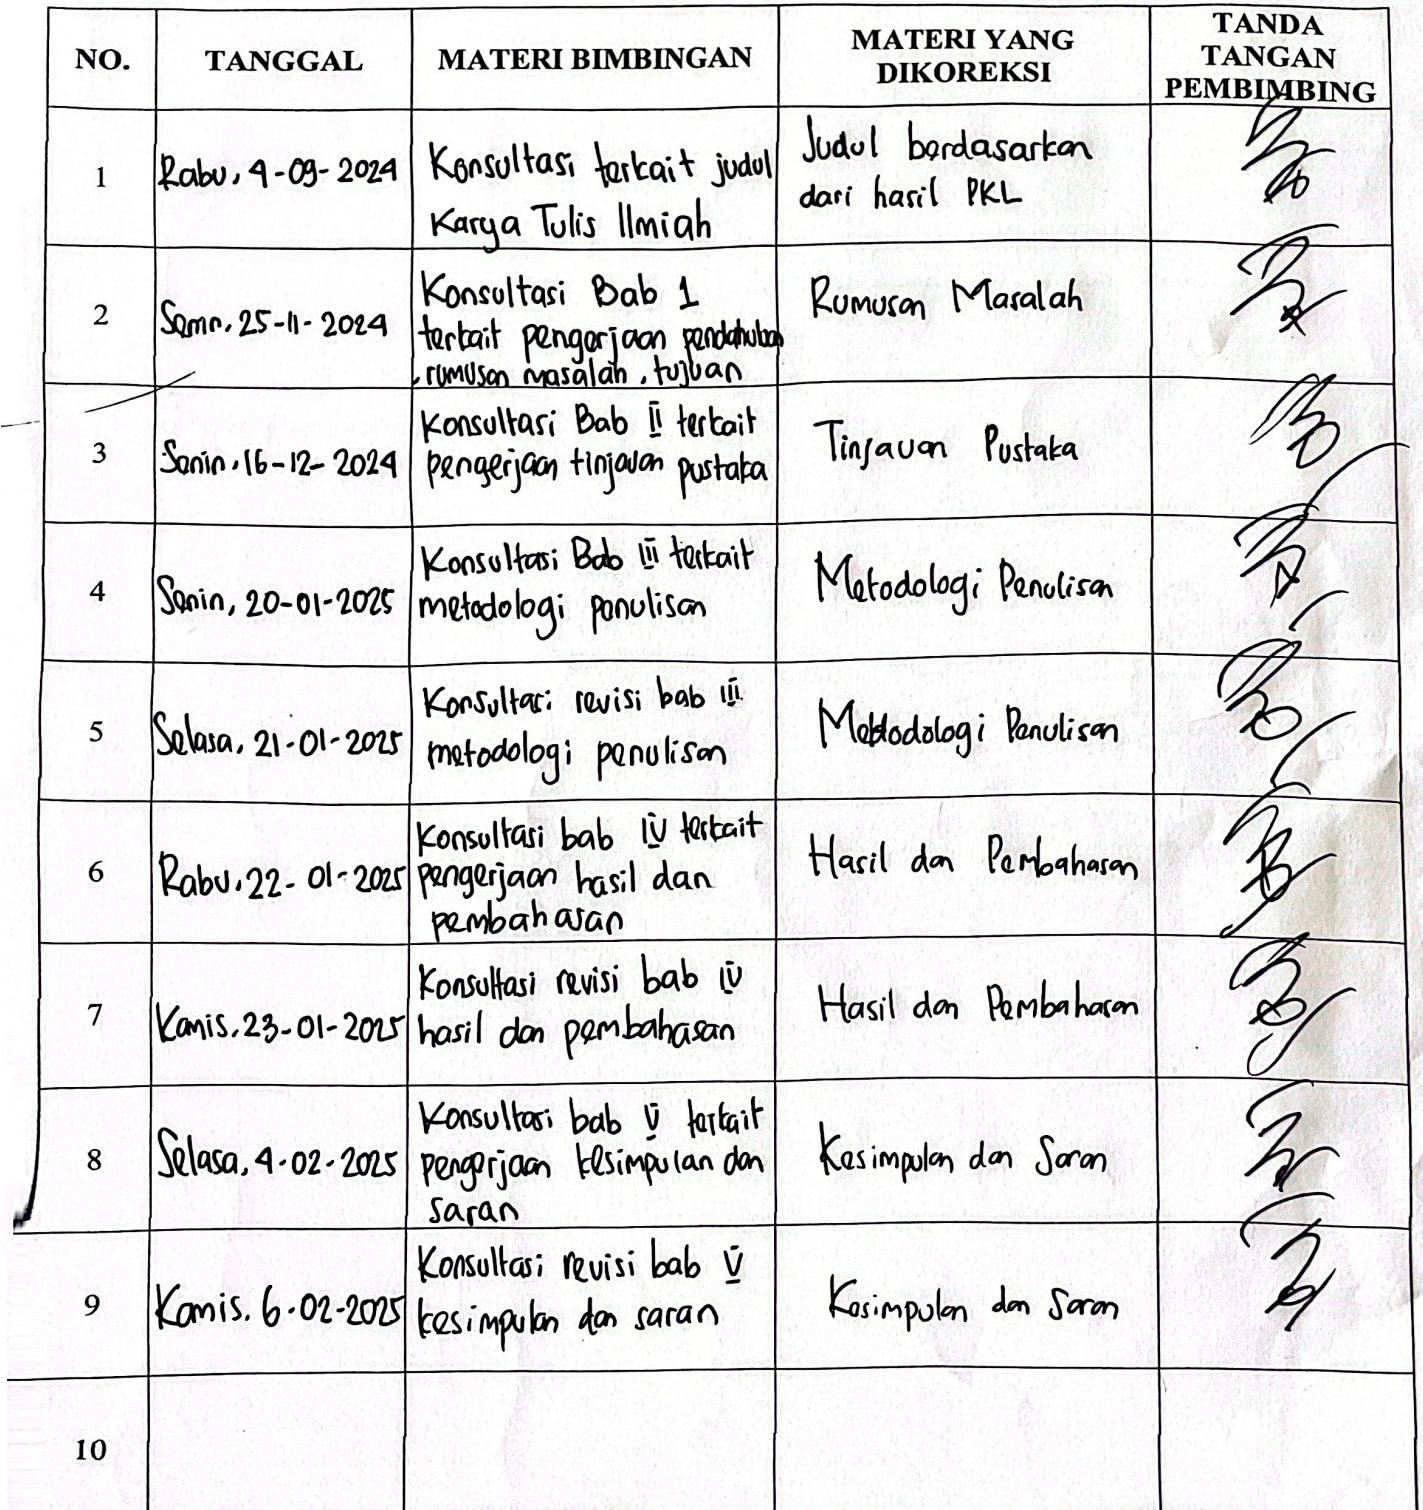 NO.
TANGGAL
MATERI BIMBINGAN
MATERI YANG
DIKOREKSI
TANDA
TANGAN
PEMBIMBING
1
Rabu, 4-09-2024
Konsultasi terkait judul
Karya Tulis Ilmiah
Judul berdasarkan
dari hasil PKL
2
Senin, 25-11-2024
Konsultasi Bab 1
terkait pengerjaan pendahuluan
, rumusan masalah, tujuan
Rumusan Masalah
3
Senin, 16-12-2024
Konsultasi Bab II terkait
pengerjaan tinjauan pustaka
Tinjauan Pustaka
4
Senin, 20-01-2025
Konsultasi Bab III terkait
metodologi penulisan
Metodologi Penulisan
5
Selasa, 21-01-2025
Konsultasi revisi bab III
metodologi penulisan
Metododologi Penulisan
6
Rabu, 22-01-2025
Konsultasi bab IV terkait
pengerjaan hasil dan
pembahasan
Hasil dan Pembahasan
7
Kamis, 23-01-2025
Konsultasi revisi bab IV
hasil dan pembahasan
Hasil dan Pembahasan
8
Selasa, 4-02-2025
Konsultasi bab V terkait
pengerjaan kesimpulan dan
saran
Kesimpulan dan Saran
9
Kamis, 6-02-2025
Konsultasi revisi bab V
kesimpulan dan saran
Kesimpulan dan Saran
10